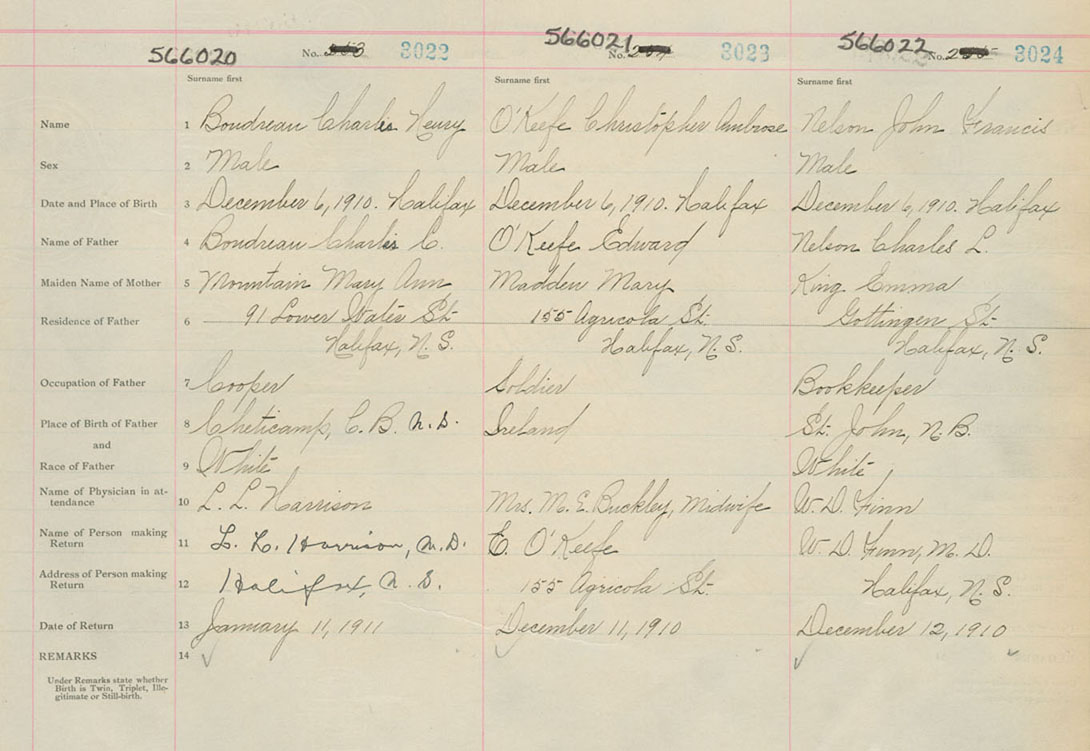 566020 No. 3022 566021 No. 3023 566022 No. 3024
Surname first Surname first Surname first
Name 1 Boudreau Charles Henry O'Keefe Christopher Ambrose Nelson John Francis
Sex 2 Male Male Male
Date and Place of Birth 3 December 6, 1910. Halifax December 6, 1910. Halifax December 6, 1910. Halifax
Name of Father 4 Boudreau Charles C. O'Keefe Edward Nelson Charles L.
Maiden Name of Mother 5 Mountain Mary Ann Madden Mary King Emma
Residence of Father 6 91 Lower Water St. 155 Agricola St. Gottingen St.
Halifax, N.S. Halifax, N.S. Halifax, N.S.
Occupation of Father 7 Cooper Soldier Bookkeeper
Place of Birth of Father 8 Cheticamp, C.B. N.S. Ireland St. John, N.B.
and
Race of Father 9 White White
Name of Physician in at-
tendance 10 L. L. Harrison Mrs. M. E. Buckley, Midwife W. D. Finn
Name of Person making
Return 11 L. L. Harrison, M.D. E. O'Keefe W. D. Finn, M.D.
Address of Person making
Return 12 Halifax, N.S. 155 Agricola St. Halifax, N.S.
Date of Return 13 January 11, 1911 December 11, 1910 December 12, 1910
REMARKS 14
Under Remarks state whether
Birth is Twin, Triplet, Ille-
gitimate or Still-birth.